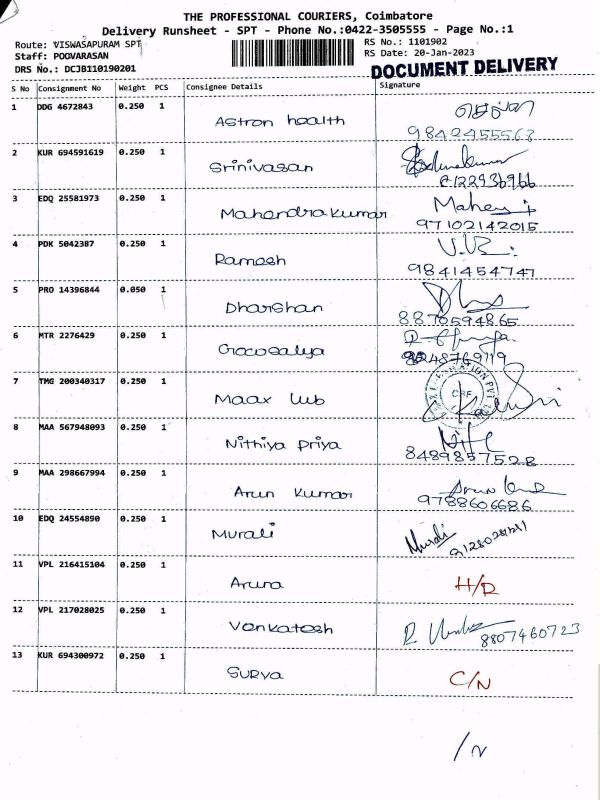 THE PROFESSIONAL COURIERS, Coimbatore
Delivery Runsheet - SPT - Phone No.:0422-3505555 - Page No.:1
Route: VISWASAPURAM SPT
RS No.: 1101902
Staff: POOVARASAN
RS Date: 20-Jan-2023
DRS No.: DCJB110190201
DOCUMENT DELIVERY
S No Consignment No Weight PCS Consignee Details Signature
1 DDG 4672843 0.250 1
Astron health
9842455563
2 KUR 694591619 0.250 1
Srinivasan
3 EDQ 25581973 0.250 1
Mahendrakumar
97102142015
4 PDK 5042387 0.250 1
Ramesh
9841454747
5 PRO 14396844 0.050 1
Dharshan
8870594865
6 MTR 2276429 0.250 1
7 TMG 200340317 0.250 1
Maax lub
CBE
8 MAA 567948093 0.250 1
Nithiya priya
8489857528
9 MAA 298667994 0.250 1
Arun Kumar
9788606686
10 EDQ 24554890 0.250 1
Murali
Murali
11 VPL 216415104 0.250 1
Aruna
H/D
12 VPL 217028025 0.250 1
Venkatesh
8807460723
13 KUR 694300972 0.250 1
Surya
C/N
/N